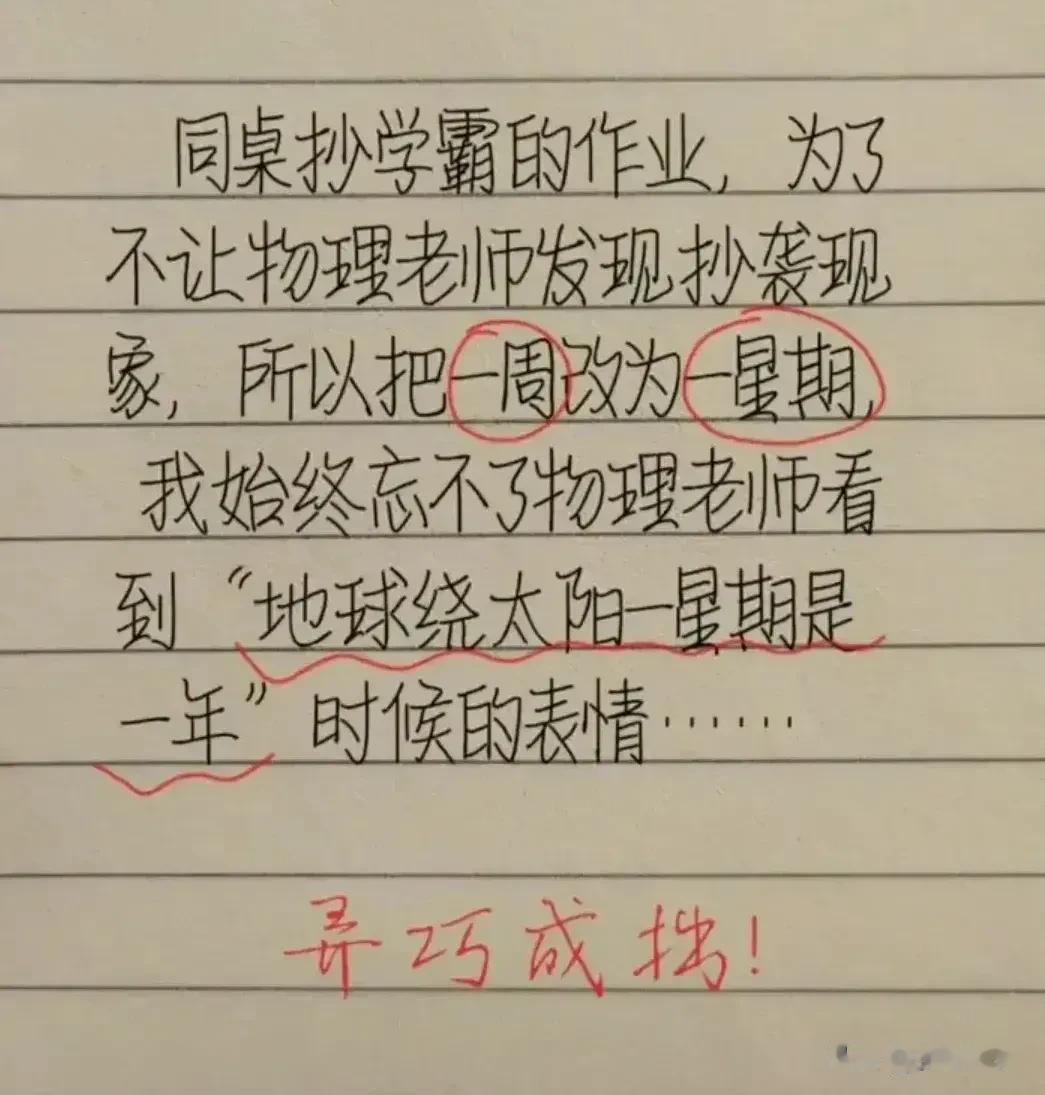 同桌抄学霸的作业，为了
不让物理老师发现抄袭现
象，所以把一周改为一星期，
我始终忘不了物理老师看
到“地球绕太阳一星期是
一年”时候的表情……
弄巧成拙！